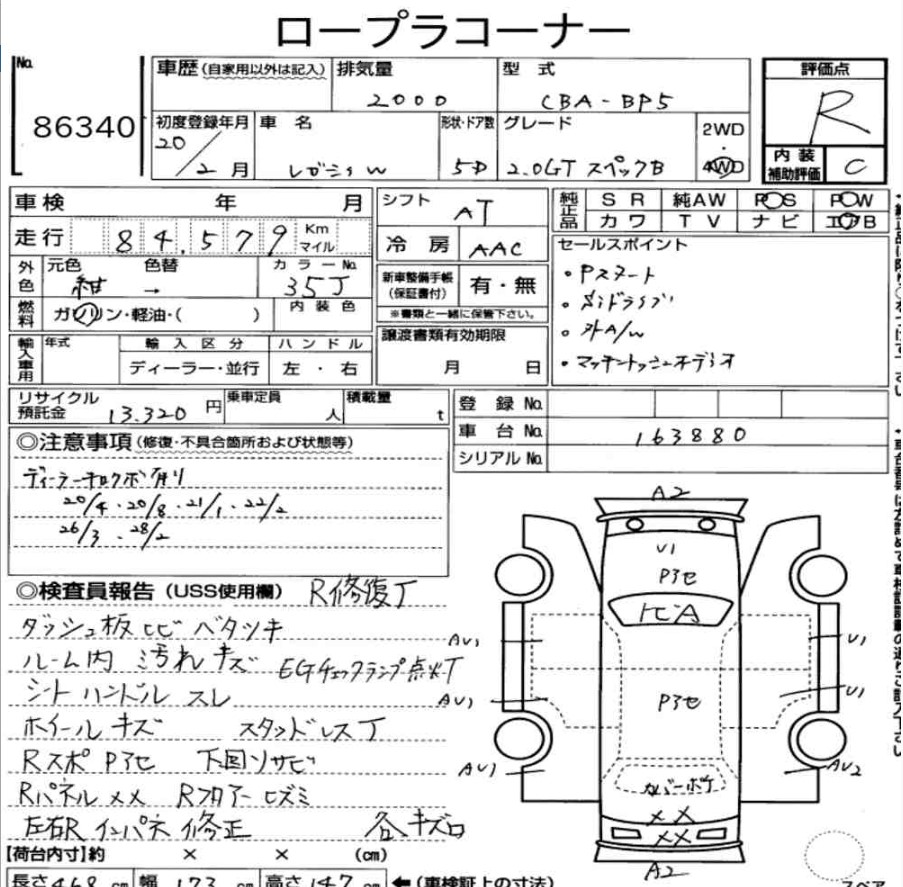 ロープラコーナー
No.
86340
車歴(自家用以外は記入)
排気量
2000
型式
CBA-BP5
評価点
R
内装補助評価
C
初度登録年月
20/2月
車名
レガシィW
形状・ドア数
5D
グレード
2.0GT スペックB
2WD・4WD
車検 年 月
走行 84,579 Km マイル
シフト
AT
冷房
AAC
純正品
SR 純AW PS PW
カワ TV ナビ エアB
外色
元色 色替 カラーNo.
紺 → 35J
燃料
ガソリン・軽油・( )
内装色
新車整備手帳(保証書付)
有・無
※書類と一緒に保管下さい。
譲渡書類有効期限
月 日
セールスポイント
・Pスタート
・外A/W
・マッキントッシュオーディオ
輸入車用
年式
輸入区分
ハンドル
ディーラー・並行
左・右
リサイクル預託金
13,320円
乗車定員
人
積載量
t
登録No.
車台No.
163880
シリアルNo.
◎注意事項(修復・不具合箇所および状態等)
ディーラーキロクボ有り
20/4・20/8・21/1・22/2
26/3・28/2
◎検査員報告(USS使用欄)
R修復丁
ダッシュ板ヒビ ベタツキ
ルーム内 汚れキズ
EGチェックランプ点灯丁
シート ハンドル スレ
ホイールキズ スタッドレス丁
Rスポ Pアセ 下回リサビ
Rパネル×× Rフロアー ヒズミ
左右Rインパネ修正
各キズロ
【荷台内寸】約 × × (cm)
長さ468cm 幅173cm 高さ147cm
←(車検証上の寸法)
A2
U1
Pアセ
トビA
AU1
U1
AU1
Pアセ
U1
AU1
AU2
カバーボケ
××
××
A2
スペア